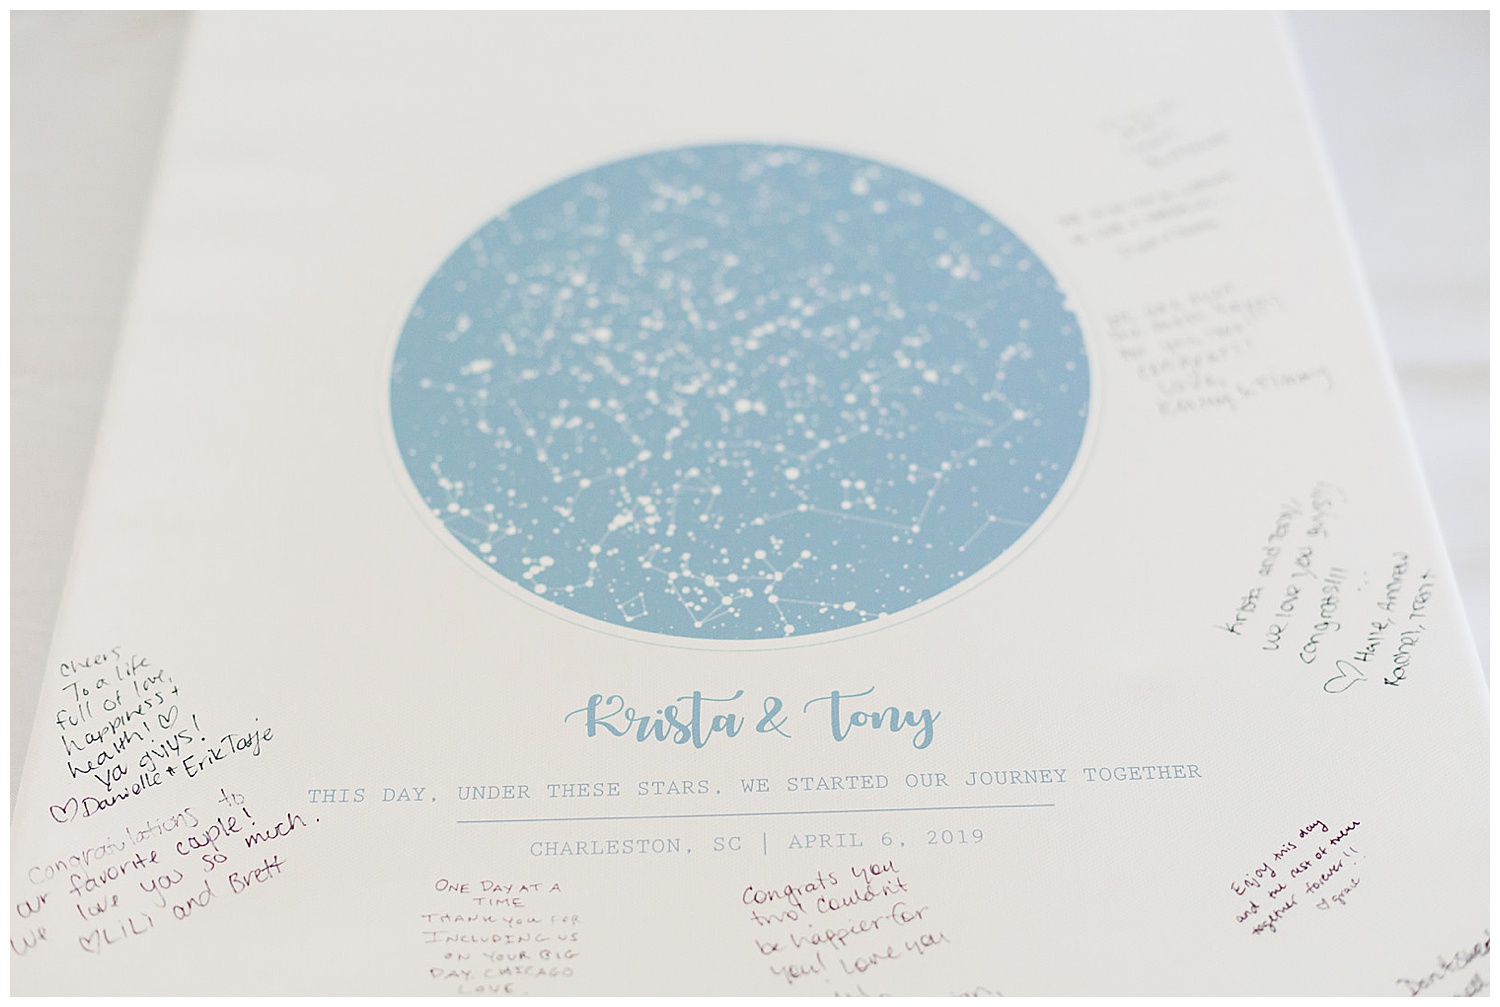 we are both
the most happy
for you two!
Congrats!!
Love,
& Timmy
Krista and Tony,
we love you guys!!
congrats!!!
♡ Halle, Andrew
Rachel, Trent
cheers
To a life
full of love,
happiness +
health! ♡
Ya guys!
♡ Danielle + Erik Tatje
Congratulations to
our favorite couple!
We love you so much.
♡ LiLi and Brett
Krista & Tony
THIS DAY, UNDER THESE STARS, WE STARTED OUR JOURNEY TOGETHER
CHARLESTON, SC | APRIL 6, 2019
ONE DAY AT A
TIME
THANK YOU FOR
INCLUDING US
ON YOUR BIG
DAY. CHICAGO
LOVE.
Congrats you
two! Couldn't
be happier for
you! Love you
Enjoy this day
and the rest of them
together forever!!
♡ grace
Don't sweat